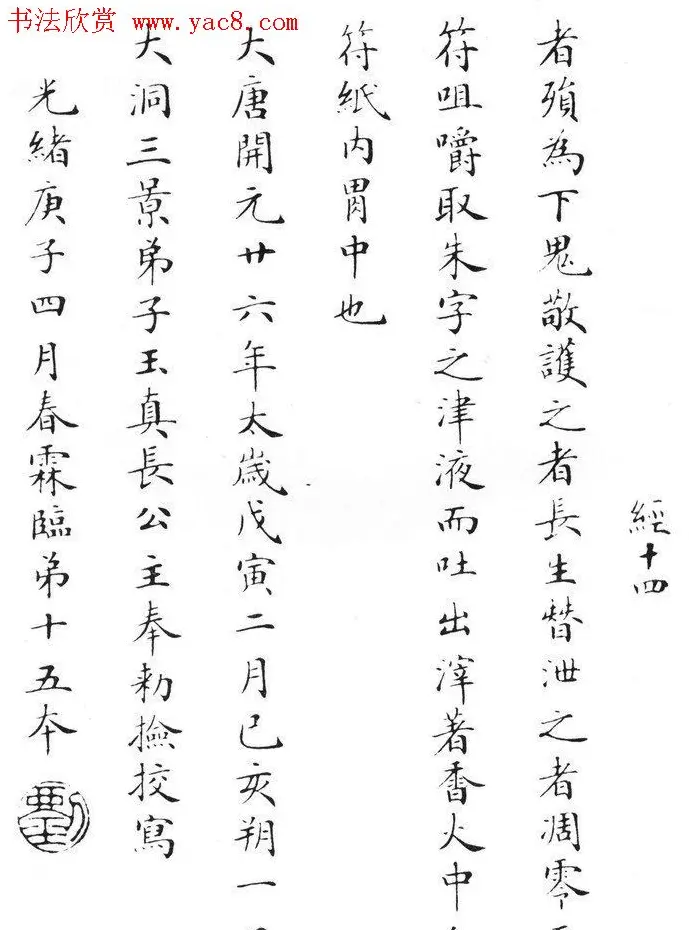 书法欣赏 www.yac8.com
經十四
者殞為下鬼敬護之者長生替泄之者凋零
符咀嚼取朱字之津液而吐出滓著香火中
符紙內胃中也
大唐開元廿六年太歲戊寅二月己亥朔一
大洞三景弟子玉真長公主奉勑撿挍寫
光緒庚子四月春霖臨弟十五本